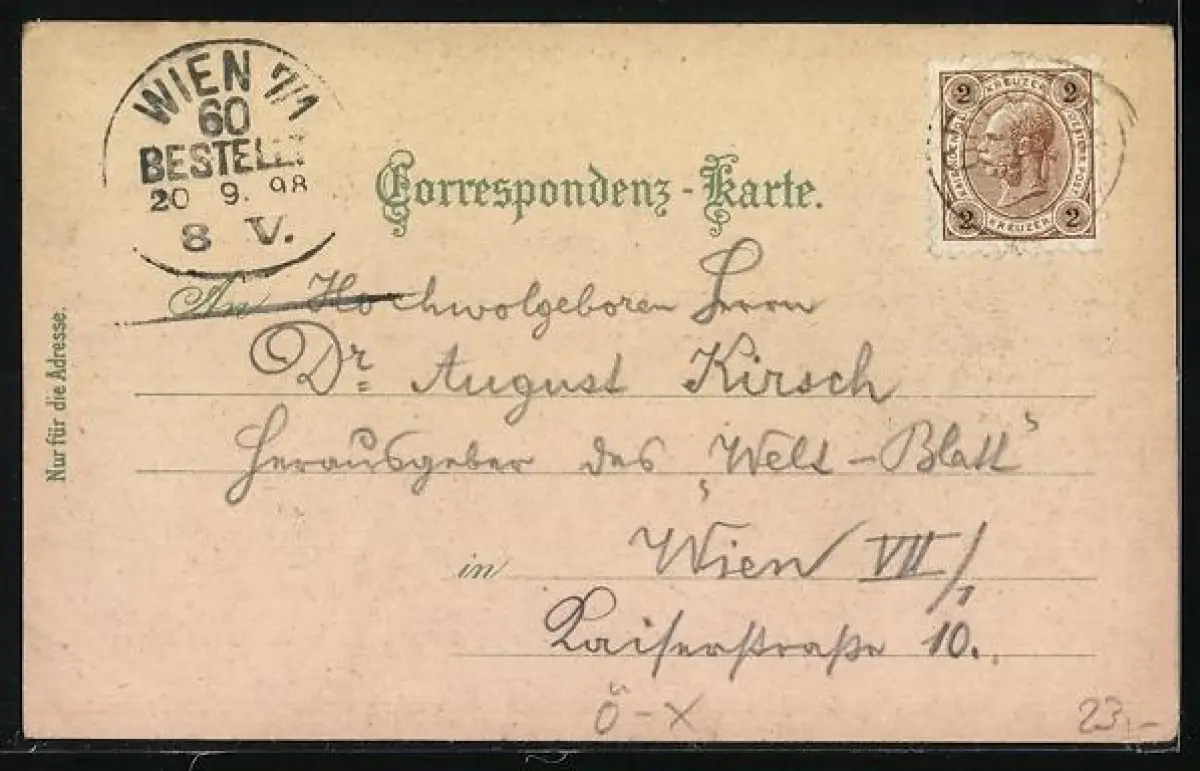 WIEN 7/1
60
BESTELLT
20 9. 98
8 V.
Correspondenz-Karte.
2 KREUZER 2
2 KREUZER 2
An Hochwolgeboren Herrn
Dr. August Kirsch
Herausgeber des "Welt-Blatt"
in Wien VII/1
Kaiserstraße 10.
Nur für die Adresse.
Ö-X
23,-